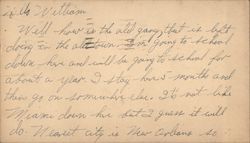 William
Well how is the old gang that is left
going in the old town. I'm going to school
down here and will be going to school for
about a year. I stay here 5 months and
then go on somewhere else. It's not like
Miami down here but I guess it will
do. Nearest city is New Orleans so